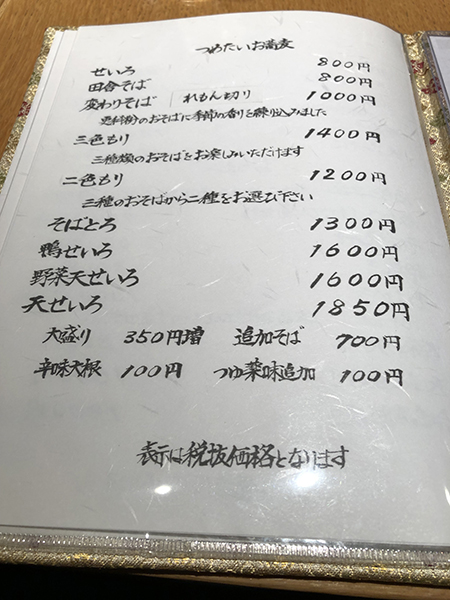 つめたいお蕎麦
せいろ 800円
田舎そば 800円
変わりそば | れもん切り 1000円
更科粉のおそばに季節の香りを練り込みました
三色もり 1400円
三種類のおそばをお楽しみいただけます
二色もり 1200円
三種のおそばから二種をお選び下さい
そばとろ 1300円
鴨せいろ 1600円
野菜天せいろ 1600円
天せいろ 1850円
大盛り 350円増 追加そば 700円
辛味大根 100円 つゆ薬味追加 100円
表示は税抜価格となります